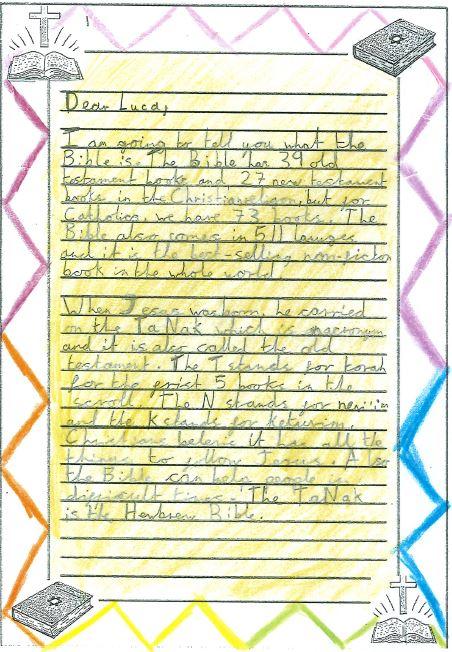 Dear Luca,
I am going to tell you what the
Bible is. The Bible has 39 old
testament books and 27 new testament
books in the Christian religon, but for
Catholics, we have 73 books. The
Bible also comes in 511
and it is the best-selling non-fiction
book in the whole world.
When Jesus was born, he carried
on the TaNak which is
and it is also called the old
testament. The T stands for torah
for the first 5 books in the
scroll. The N stands for
and the K stands for
Christians it has all the
things to follow Jesus. Also
the Bible can help people in
times. The TaNak
is the Bible.